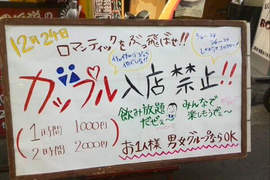 12月24日
ロマンティックをぶっ飛ばせ!!
カップル入店禁止!!
(1時間 1000円
2時間 2000円)
飲み放題
だぜぇ〜
みんなで
楽しもうぜぇ〜
お1人様 男女グループならOK